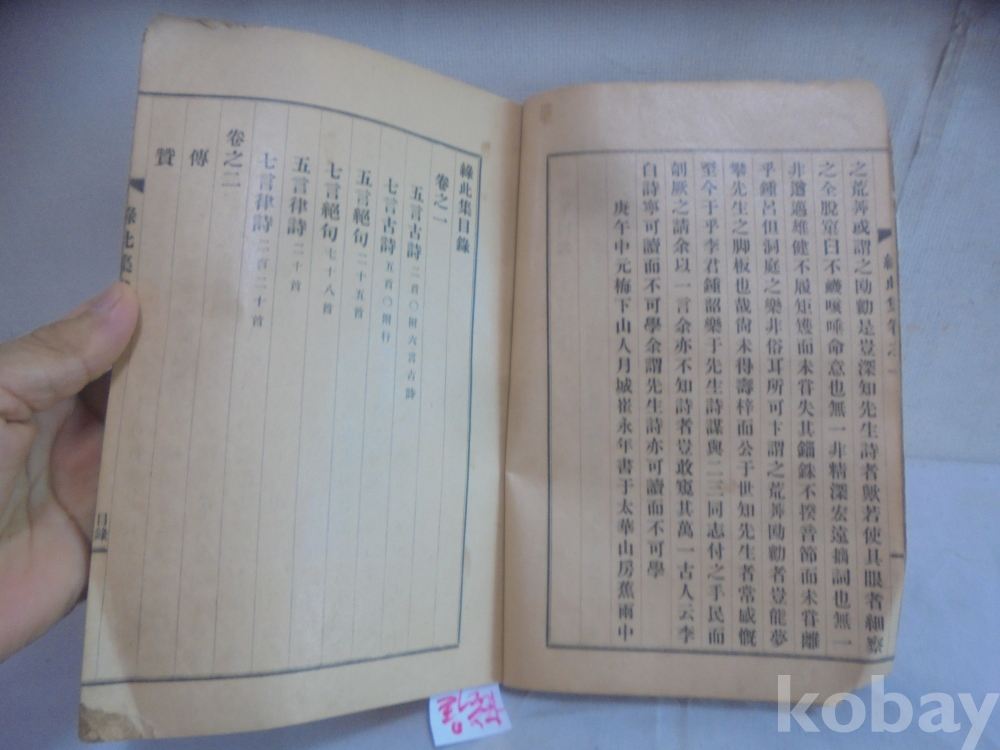 之荒 或謂之 勸是豈深知先生詩者歟若使具眼者細察
之全脫窠臼不 咳唾命意也無一非精深宏遠摛詞也無一
非遒邁雄健不 矩矱而未嘗失其錙銖不揆音節而未嘗離
乎鍾呂但洞庭之樂非俗耳所可卞謂之荒 勸者豈能夢
攀先生之脚板也哉尙未得壽梓而公于世知先生者常感慨
至今于乎李君鍾韶樂于先生詩謀與二三同志付之手民而
剞厥之請余以一言余亦不知詩者豈敢窺其萬一古人云李
白詩寧可讀而不可學余謂先生詩亦可讀而不可學
庚午中元梅下山人月城崔永年書于太華山房蕉雨中
綠此集目錄
卷之一
五言古詩 二首〇附六言古詩
七言古詩 五首〇附行
五言絕句 二十五首
七言絕句 七十八首
五言律詩 二十首
七言律詩 二百二十首
卷之二
傳
贊
目錄
kobay